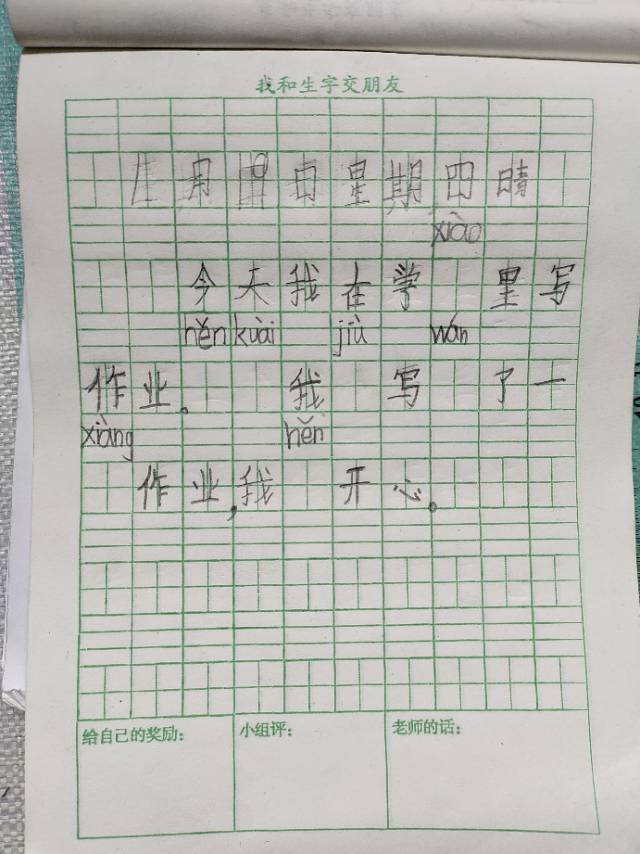 我和生字交朋友
月 日 星期四 晴
xiào
今天我在学 里写
hěn kuài jiù wán
作业。 我 写 了一
xiàng hěn
作业,我 开心。
给自己的奖励: 小组评: 老师的话: